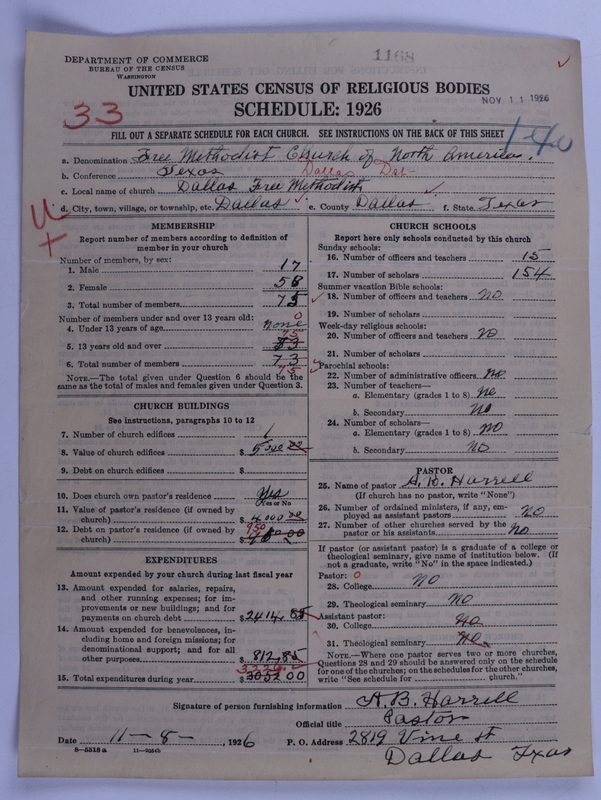 DEPARTMENT OF COMMERCE
BUREAU OF THE CENSUS
WASHINGTON
1168
UNITED STATES CENSUS OF RELIGIOUS BODIES
SCHEDULE: 1926
NOV 11 1926
33
140
FILL OUT A SEPARATE SCHEDULE FOR EACH CHURCH. SEE INSTRUCTIONS ON THE BACK OF THIS SHEET
a. Denomination Free Methodist Church of North America.
b. Conference Texas Dallas Dst-
c. Local name of church Dallas Free Methodist
d. City, town, village, or township, etc. Dallas e. County Dallas f. State Texas
MEMBERSHIP
Report number of members according to definition of member in your church
Number of members, by sex:
1. Male 17
2. Female 58
3. Total number of members 75
Number of members under and over 13 years old:
4. Under 13 years of age none 0
5. 13 years old and over 73
6. Total number of members 73
NOTE.—The total given under Question 6 should be the same as the total of males and females given under Question 3.
CHURCH BUILDINGS
See instructions, paragraphs 10 to 12
7. Number of church edifices 1
8. Value of church edifices $
9. Debt on church edifices $
10. Does church own pastor's residence Yes
Yes or No
11. Value of pastor's residence (if owned by church) $
12. Debt on pastor's residence (if owned by church) $ 950
EXPENDITURES
Amount expended by your church during last fiscal year
13. Amount expended for salaries, repairs, and other running expenses; for improvements or new buildings; and for payments on church debt $ 2414.85
14. Amount expended for benevolences, including home and foreign missions; for denominational support; and for all other purposes $ 812.85
15. Total expenditures during year $
CHURCH SCHOOLS
Report here only schools conducted by this church
Sunday schools:
16. Number of officers and teachers 15
17. Number of scholars 154
Summer vacation Bible schools:
18. Number of officers and teachers no
19. Number of scholars
Week-day religious schools:
20. Number of officers and teachers No
21. Number of scholars
Parochial schools:
22. Number of administrative officers No
23. Number of teachers—
a. Elementary (grades 1 to 8) No
b. Secondary No
24. Number of scholars—
a. Elementary (grades 1 to 8) NO
b. Secondary No
PASTOR
25. Name of pastor A. B. Harrell
(If church has no pastor, write "None")
26. Number of ordained ministers, if any, employed as assistant pastors No
27. Number of other churches served by the pastor or his assistants No
If pastor (or assistant pastor) is a graduate of a college or theological seminary, give name of institution below. (If not a graduate, write "No" in the space indicated.)
Pastor: 0
28. College NO
29. Theological seminary NO
Assistant pastor:
30. College No
31. Theological seminary No
NOTE.—Where one pastor serves two or more churches, Questions 28 and 29 should be answered only on the schedule for one of the churches; on the schedules for the other churches, write "See schedule for church."
Signature of person furnishing information A. B. Harrell
Official title Pastor
Date 11-8-, 1926 P. O. Address 2819 Vine st
Dallas Txas
8—5518 a